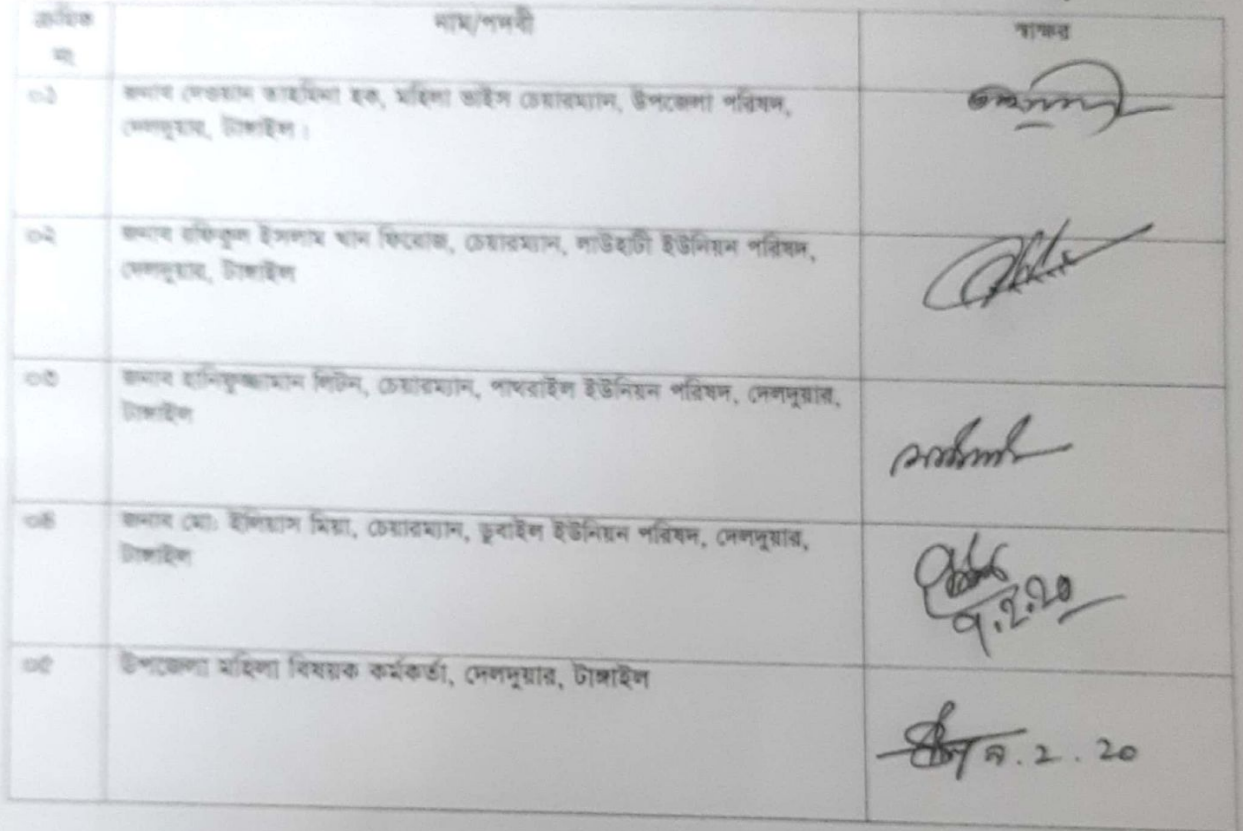 ক্রমিক
নং
নাম/পদবী
স্বাক্ষর
০১
জনাব মহিলা ভাইস চেয়ারম্যান, উপজেলা পরিষদ,
দেলদুয়ার, টাঙ্গাইল।
০২
জনাব রফিকুল ইসলাম খান ফিরোজ, চেয়ারম্যান, লাউহাটী ইউনিয়ন পরিষদ,
দেলদুয়ার, টাঙ্গাইল
০৩
জনাব হানিফুজ্জামান লিটন, চেয়ারম্যান, পাথরাইল ইউনিয়ন পরিষদ, দেলদুয়ার,
টাঙ্গাইল
০৪
জনাব মো: ইলিয়াস মিয়া, চেয়ারম্যান, ডুবাইল ইউনিয়ন পরিষদ, দেলদুয়ার,
টাঙ্গাইল
৭.2.20
০৫
উপজেলা মহিলা বিষয়ক কর্মকর্তা, দেলদুয়ার, টাঙ্গাইল
2.20